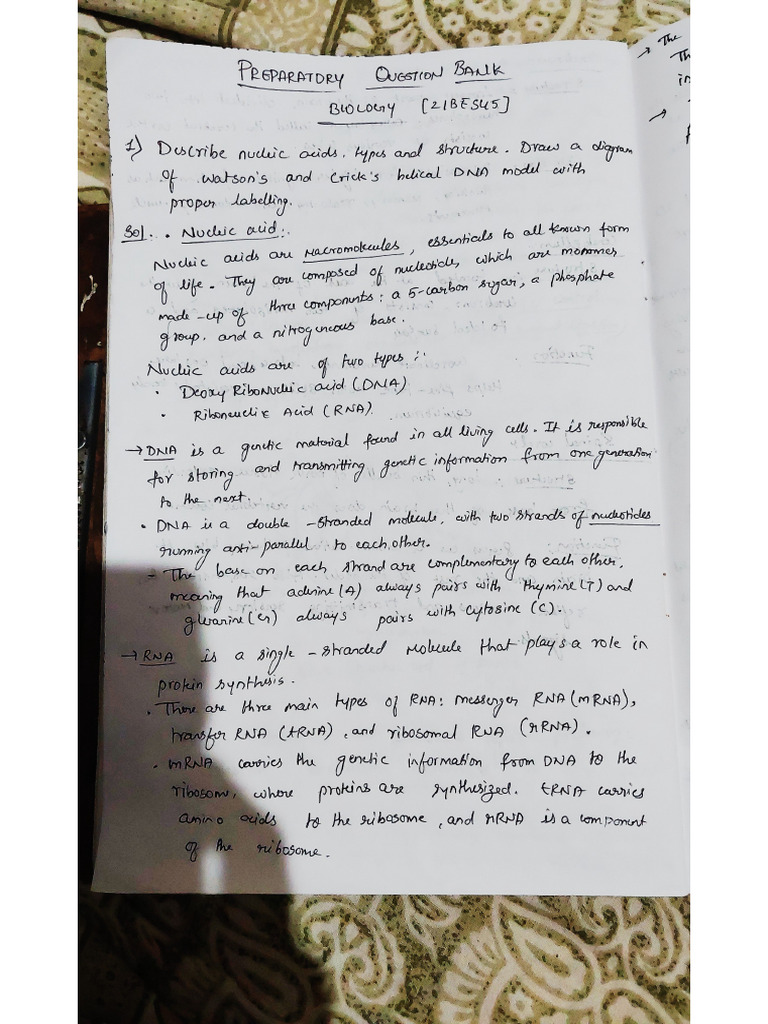 PREPARATORY QUESTION BANK
BIOLOGY [21BES45]
1) Describe nucleic acids, types and structure. Draw a diagram
of Watson's and Crick's helical DNA model with
proper labelling.
Sol. • Nucleic acid:.
Nucleic acids are Macromolecules, essentials to all known form
of life. They are composed of nucleotide, which are monomes
made-up of three components: a 5-carbon sugar, a phosphate
group. and a nitrogeneous base.
Nucleic acids are of two types :-
• Deoxy RiboNucleic acid (DNA)
• Riboneucleic Acid (RNA).
→ DNA is a genetic material found in all living cells. It is responsible
for storing and transmitting genetic information from one generation
to the next.
• DNA is a double-stranded molecule, with two strands of nucleotides
running anti-parallel to each other.
- The base on each strand are complementary to each other,
meaning that adenine (A) always pairs with thymine (T) and
guanine (G) always pairs with cytosine (C).
→ RNA is a single-stranded Molecule that plays a role in
protein synthesis.
• There are three main types of RNA: messenger RNA (mRNA),
transfer RNA (tRNA), and ribosomal RNA (rRNA).
• mRNA carries the genetic information from DNA to the
ribosome, where proteins are synthesized. tRNA carries
amino acids to the ribosome, and rRNA is a component
of the ribosome.
→ The
Th
in
→